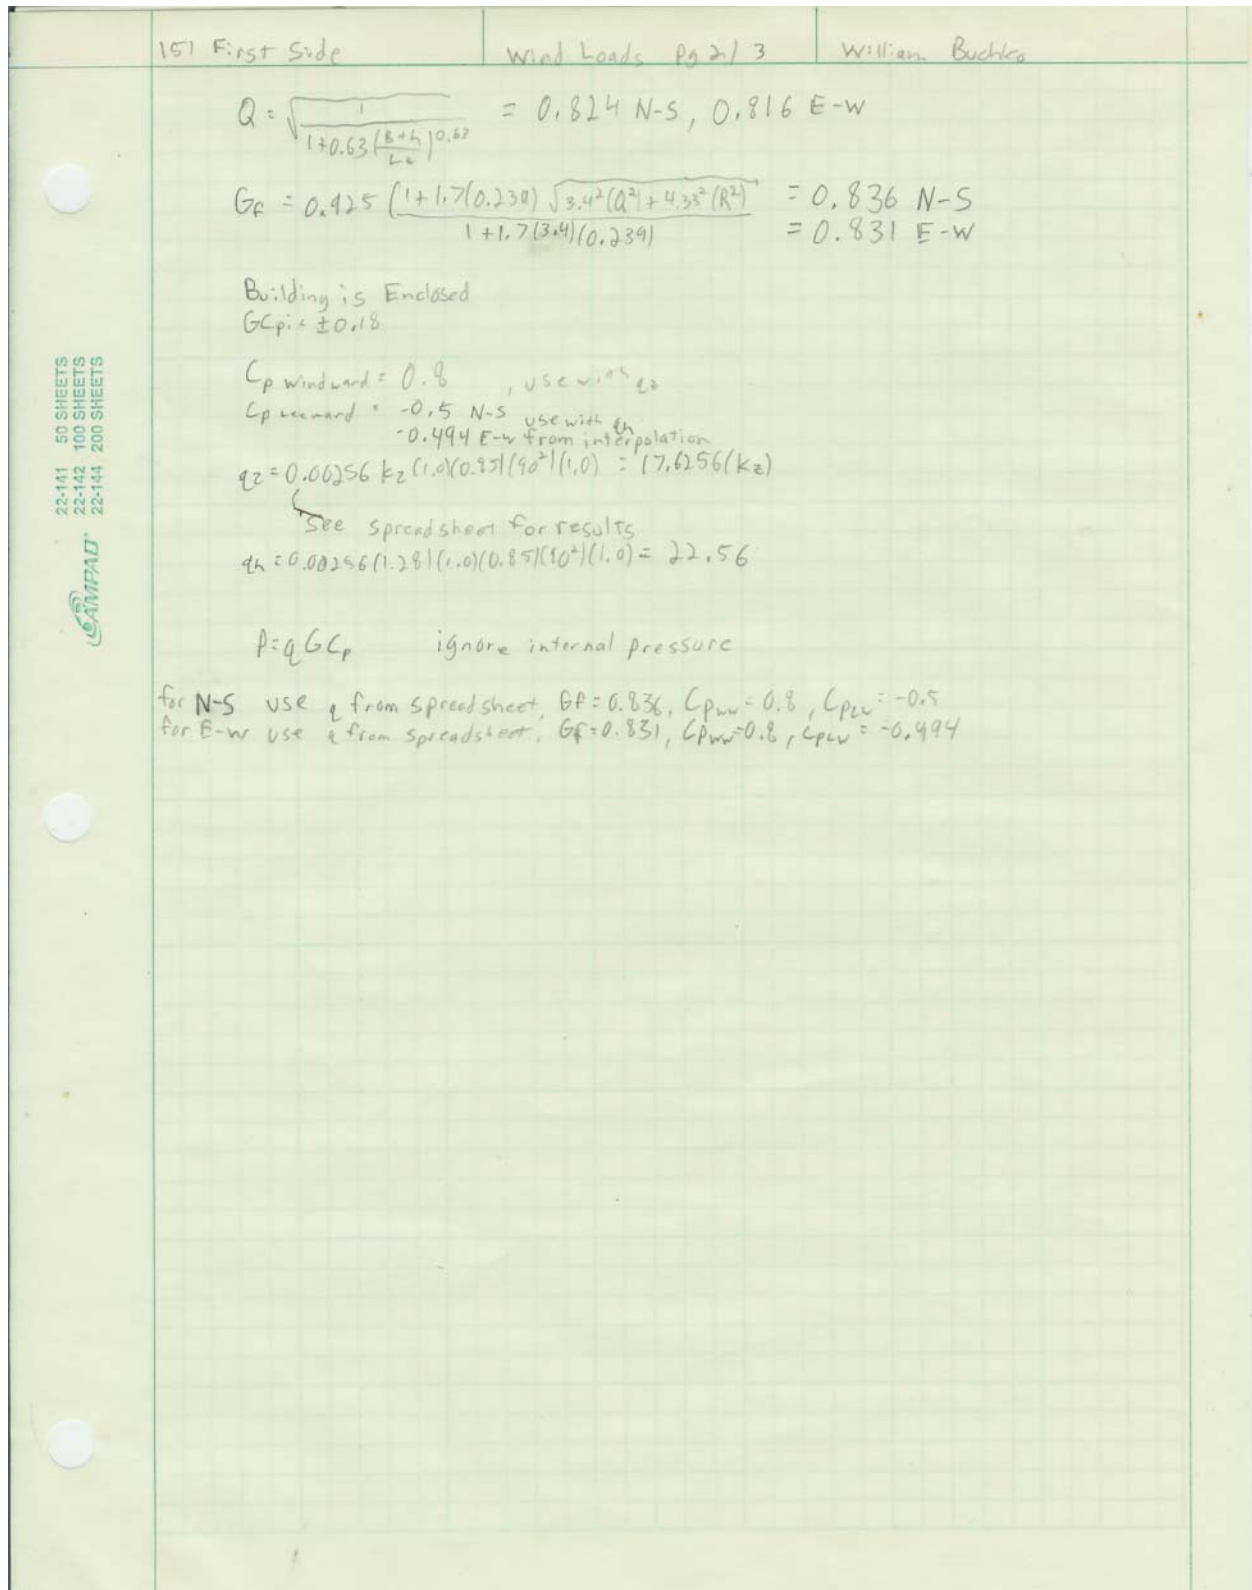 151 First Side
Wind Loads Pg 2/3
William Buchko
Q = √(1 / (1+0.63((B+h)/Lz)^0.63)) = 0.824 N-S, 0.816 E-W
Gf = 0.925 (1+1.7(0.239) √(3.4²(Q²)+4.33²(R²)) / (1+1.7(3.4)(0.239)) = 0.836 N-S
= 0.831 E-W
Building is Enclosed
GCpi = ±0.18
Cp windward = 0.8 , use with qz
Cp Leeward = -0.5 N-S use with qh
-0.494 E-W from interpolation
qz = 0.00256 kz (1.0)(0.85)(90²)(1.0) = 17.6256(kz)
See spreadsheet for results
qh = 0.00256(1.28)(1.0)(0.85)(90²)(1.0) = 22.56
P=qGCp ignore internal pressure
for N-S use q from spreadsheet, Gf=0.836, Cpww=0.8, CpLw=-0.5
for E-W use q from spreadsheet, Gf=0.831, Cpww=0.8, CpLw=-0.494
22-141 50 SHEETS
22-142 100 SHEETS
22-144 200 SHEETS
AMPAD